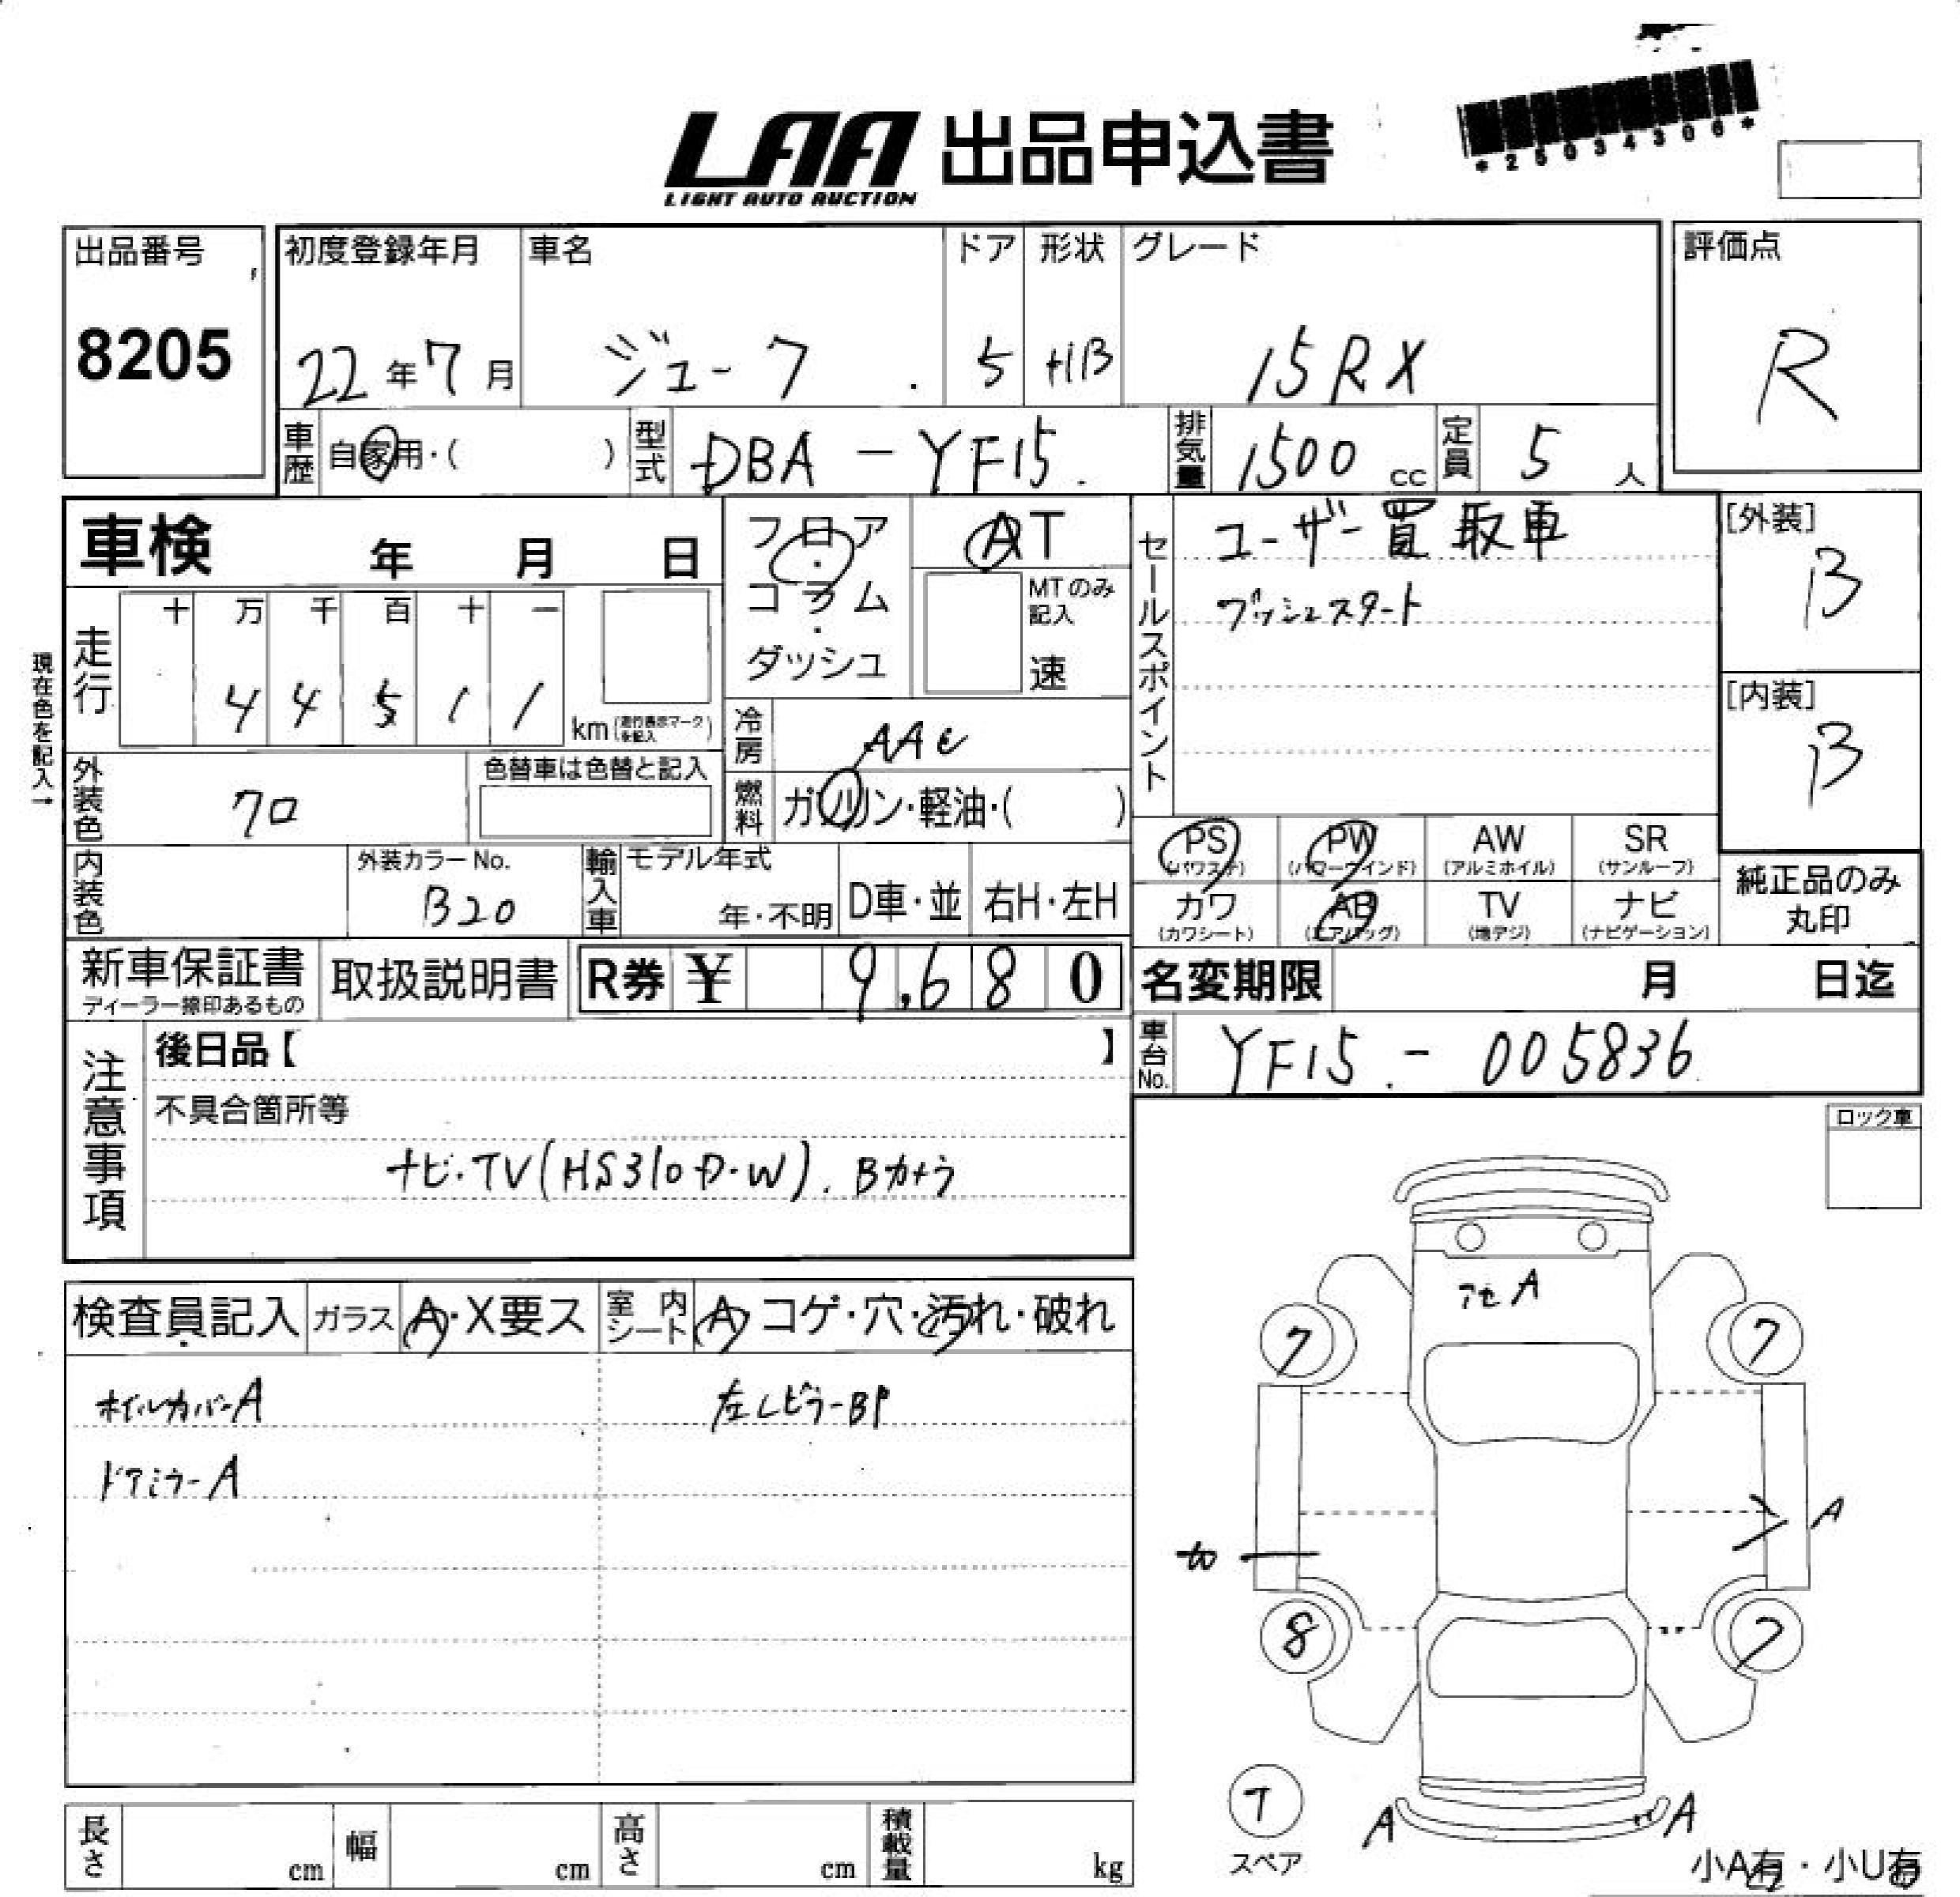 LAA 出品申込書
LIGHT AUTO AUCTION
*25034306*
出品番号
8205
初度登録年月
22年7月
車名
ジューク
ドア
5
形状
HB
グレード
15RX
評価点
R
車歴
自家用・( )
型式
DBA-YF15
排気量
1500cc
定員
5人
車検 年 月 日
フロア・コラム・ダッシュ
AT
MTのみ記入
速
セールスポイント
ユーザー買取車
プッシュスタート
[外装]
B
[内装]
B
現在色を記入→
走行
十 万 千 百 十 一
4 4 5 1 1
km (走行表示マークを記入)
冷房
AAC
燃料
ガソリン・軽油・( )
外装色
クロ
色替車は色替と記入
内装色
外装カラーNo.
B20
輸入車
モデル年式
年・不明
D車・並
右H・左H
PS (パワステ)
PW (パワーウインド)
AW (アルミホイル)
SR (サンルーフ)
カワ (カワシート)
AB (エアバッグ)
TV (地デジ)
ナビ (ナビゲーション)
純正品のみ丸印
新車保証書
ディーラー捺印あるもの
取扱説明書
R券 ¥ 9,680
名変期限 月 日迄
車台No.
YF15-005836
注意事項
後日品【 】
不具合箇所等
ナビ・TV(HS310D・W).Bカメラ
ロック車
検査員記入
ガラス A・X要ス
室内シート A・コゲ・穴・汚れ・破れ
ホイルカバーA
左CピラーBP
ドアミラーA
アセA
7
7
A
カ
8
7
7
スペア
A
A
小A有・小U有
長さ cm
幅 cm
高さ cm
積載量 kg